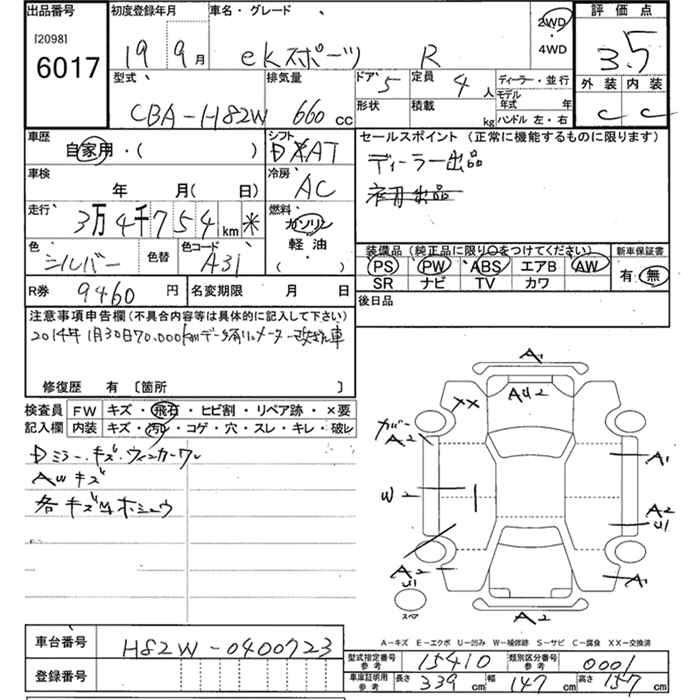 出品番号
[2098]
6017
初度登録年月
19 9月
車名・グレード
eKスポーツ R
2WD
・
4WD
評価点
3.5
外装 内装
C C
型式
CBA-H82W
排気量
660 cc
ドア 5
定員 4人
形状
積載 kg
ディーラー・並行
モデル年式 年
ハンドル 左・右
車歴
自家用・( )
シフト
AT
セールスポイント (正常に機能するものに限ります)
ディーラー出品
車検
年 月( 日)
冷房
AC
走行
3万4千754km
燃料
ガソリン
軽油
( )
色
シルバー
色替
色コード
A31
装備品(純正品に限り○をつけてください)
PS PW ABS エアB AW
SR ナビ TV カワ
新車保証書
有・無
R券 9460円
名変期限 月 日
後日品
注意事項申告欄(不具合内容等は具体的に記入して下さい)
2014年1月30日70.000kmデータ有りメーター改ざん車
修復歴 有 〔箇所 〕
検査員
記入欄
FW キズ・飛石・ヒビ割・リペア跡・×要
内装 キズ・汚レ・コゲ・穴・スレ・キレ・破レ
Dミラーキズ・ウィンカーワレ
AWキズ
各キズ凹ホシュウ
A1
AU2
XX
カバー
A2
A1
W2
A2
U1
A2
U1
A1
スペア
A2
A-キズ E-エクボ U-凹み W-補修跡 S-サビ C-腐食 XX-交換済
車台番号 H82W-0400723
登録番号
型式指定番号
参考
15410
類別区分番号
参考
0001
車庫証明用
参考
長さ 339cm
幅 147cm
高さ 157cm